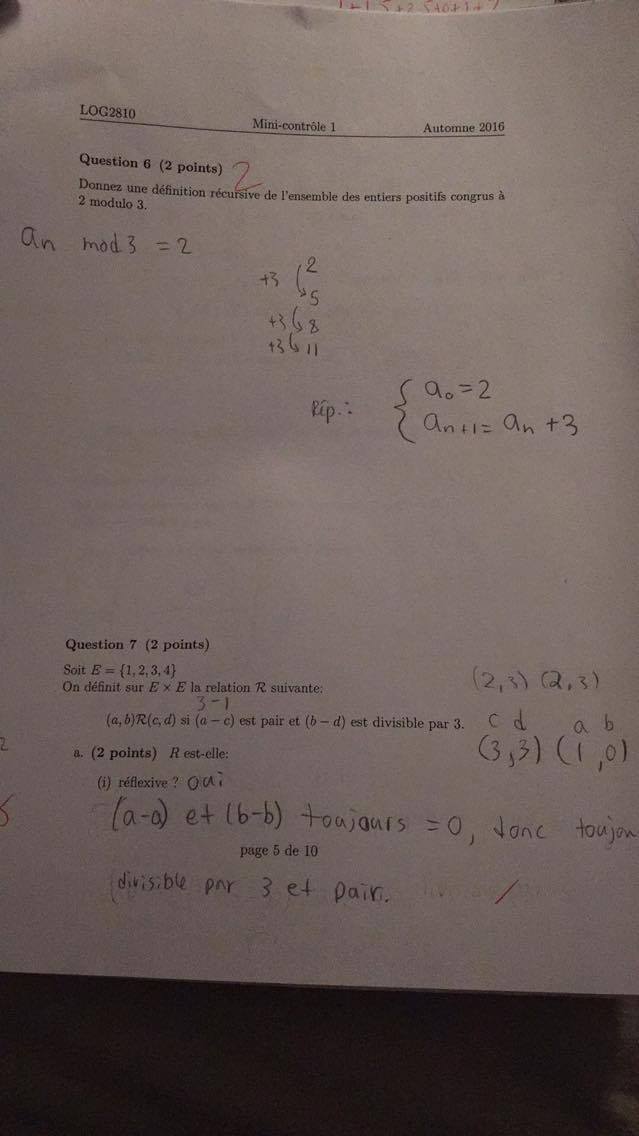 1+1.5+2.5+0+1+2
LOG2810 Mini-contrôle 1 Automne 2016
Question 6 (2 points) 2
Donnez une définition récursive de l'ensemble des entiers positifs congrus à
2 modulo 3.
an mod 3 = 2
2
+3
5
+3 8
+3 11
Rép.: { a0 = 2
an+1 = an + 3
Question 7 (2 points)
Soit E = {1, 2, 3, 4}
(2,3) (2,3)
On définit sur E × E la relation R suivante:
3-1
c d a b
(a, b)R(c, d) si (a − c) est pair et (b − d) est divisible par 3.
(3,3) (1,0)
2
a. (2 points) R est-elle:
(i) réflexive ? oui
(a-a) et (b-b) toujours = 0, donc toujou
page 5 de 10
divisible par 3 et pair.